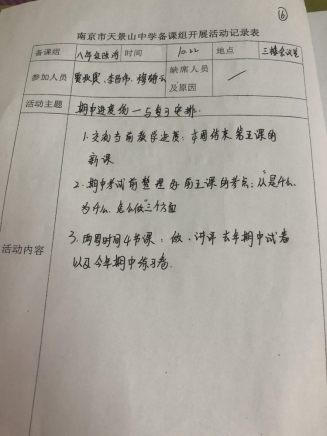 ⑯
南京市天景山中学备课组开展活动记录表
备课组 八年级政治 时间 10.22 地点 三楼会议室
参加人员 缺席人员及原因 /
活动主题 期中进度统一与复习安排.
活动内容
1. 交流当前教学进度: 本周结束第五课的
新课
2. 期中考试前整理好前五课的考点: 从是什么、
为什么、怎么做三个方面
3. 两周时间4节课: 做、讲评去年期中试卷
以及今年期中练习卷.